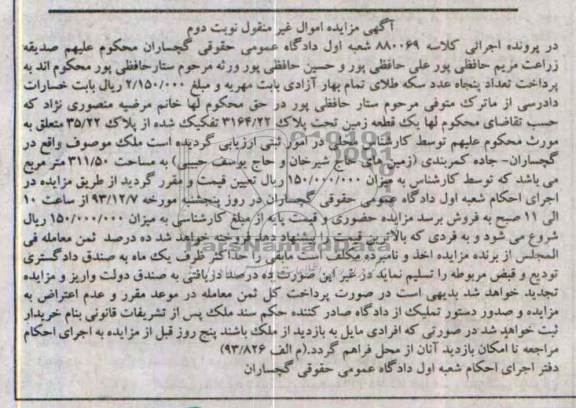 آگهی مزایده اموال غیر منقول نوبت دوم
در پرونده اجرائی کلاسه ۸۸۰۰۶۹ شعبه اول دادگاه عمومی حقوقی گچساران محکوم علیهم صدیقه
زراعت مریم حافظی پور علی حافظی پور و حسین حافظی پور ورثه مرحوم ستارحافظی پور محکوم اند به
پرداخت تعداد پنجاه عدد سکه طلای تمام بهار آزادی بابت مهریه و مبلغ ۲/۱۵۰/۰۰۰ ریال بابت خسارات
دادرسی از ماترک متوفی مرحوم ستار حافظی پور در حق محکوم لها خانم مرضیه منصوری نژاد که
حسب تقاضای محکوم لها یک قطعه زمین تحت پلاک ۳۱۶۴/۲۲ تفکیک شده از پلاک ۳۵/۲۲ متعلق به
مورث محکوم علیهم توسط کارشناس محلی در امور ثبتی ارزیابی گردیده است ملک موصوف واقع در
گچساران- جاده کمربندی (زمین های حاج شیرخان و حاج یوسف حبیبی) به مساحت ۳۱۱/۵۰ متر مربع
می باشد که توسط کارشناس به میزان ۱۵۰/۰۰۰/۰۰۰ ریال تعیین قیمت و مقرر گردید از طریق مزایده در
اجرای احکام شعبه اول دادگاه عمومی حقوقی گچساران در روز پنجشنبه مورخه ۹۳/۱۲/۷ از ساعت ۱۰
الی ۱۱ صبح به فروش برسد مزایده حضوری و قیمت پایه از مبلغ کارشناسی به میزان ۱۵۰/۰۰۰/۰۰۰ ریال
شروع می شود و به فردی که بالاترین قیمت را پیشنهاد دهد فروخته خواهد شد ده درصد ثمن معامله فی
المجلس از برنده مزایده اخذ و نامبرده مکلف است مابقی را حداکثر ظرف یک ماه به صندق دادگستری
تودیع و قبض مربوطه را تسلیم نماید در غیر این صورت ده درصد دریافتی به صندق دولت واریز و مزایده
تجدید خواهد شد بدیهی است در صورت پرداخت کل ثمن معامله در موعد مقرر و عدم اعتراض به
مزایده و صدور دستور تملیک از دادگاه صادر کننده حکم سند ملک پس از تشریفات قانونی بنام خریدار
ثبت خواهد شد در صورتی که افرادی مایل به بازدید از ملک باشند پنج روز قبل از مزایده به اجرای احکام
مراجعه تا امکان بازدید آنان از محل فراهم گردد.(م الف ۹۳/۸۲۶)
دفتر اجرای احکام شعبه اول دادگاه عمومی حقوقی گچساران